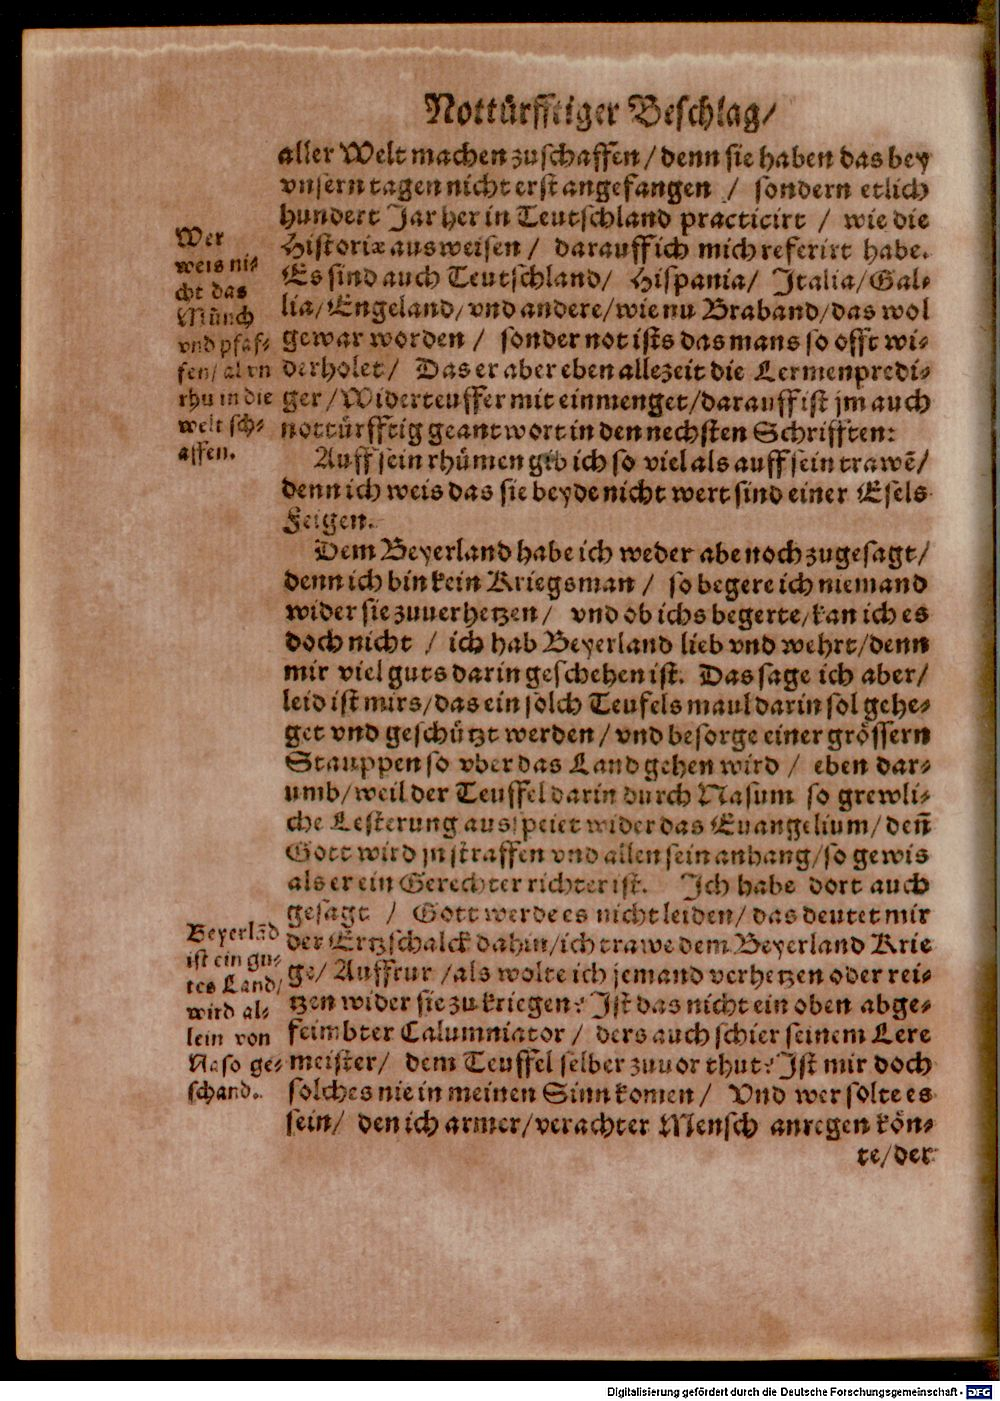 Nottürfftiger Beschlag/
aller Welt machen zuschaffen / denn sie haben das bey
vnsern tagen nicht erst angefangen / sondern etlich
hundert Jar her in Teutschland practicirt / wie die
Historiæ ausweisen / darauff ich mich referirt habe.
Es sind auch Teutschland/ Hispania/ Italia/Gal-
lia/Engeland/vnd andere/wie nu Braband/das wol
gewar worden / sonder not ists das mans so offt wi-
derholet/ Das er aber eben allezeit die Lermenpredi-
ger/Widerteuffer mit einmenget/darauff ist jm auch
nottürfftig geantwort in den nechsten Schrifften:
Auff sein rhümen gib ich so viel als auff sein trawẽ/
denn ich weis das sie beyde nicht wert sind einer Esels
Feigen.
Dem Beyerland habe ich weder abe noch zugesagt/
denn ich bin kein Kriegsman / so begere ich niemand
wider sie zuuerhetzen/ vnd ob ichs begerte/kan ich es
doch nicht / ich hab Beyerland lieb vnd wehrt/denn
mir viel guts darin geschehen ist. Das sage ich aber/
leid ist mirs/das ein solch Teufels maul darin sol gehe-
get vnd geschützt werden/vnd besorge einer grössern
Stauppen so vber das Land gehen wird / eben dar-
umb/weil der Teuffel darin durch Nasum so grewli-
che Lesterung ausspeiet wider das Euangelium/deñ
Gott wird jn straffen vnd allen sein anhang/so gewis
als er ein Gerechter richter ist. Ich habe dort auch
gesagt / Gott werde es nicht leiden/das deutet mir
der Ertzschalck dahin/ich trawe dem Beyerland Krie
ge/ Auffrur /als wolte ich jemand verhetzen oder rei-
tzen wider sie zu kriegen: Ist das nicht ein oben abge-
feimbter Calumniator / ders auch schier seinem Lere
meister/ dem Teuffel selber zuuor thut: Ist mir doch
solches nie in meinen Sinn komen / Vnd wer solte es
sein/ den ich armer/verachter Mensch anregen kön-
te/der
Wer
weis ni-
cht das
Münch
vnd pfaf-
fen/ al vn
rhu in die
welt sch-
affen.
Beyerlãd
ist ein gu-
tes Land/
wird al-
lein von
Naso ge-
schand.
Digitalisierung gefördert durch die Deutsche Forschungsgemeinschaft - DFG